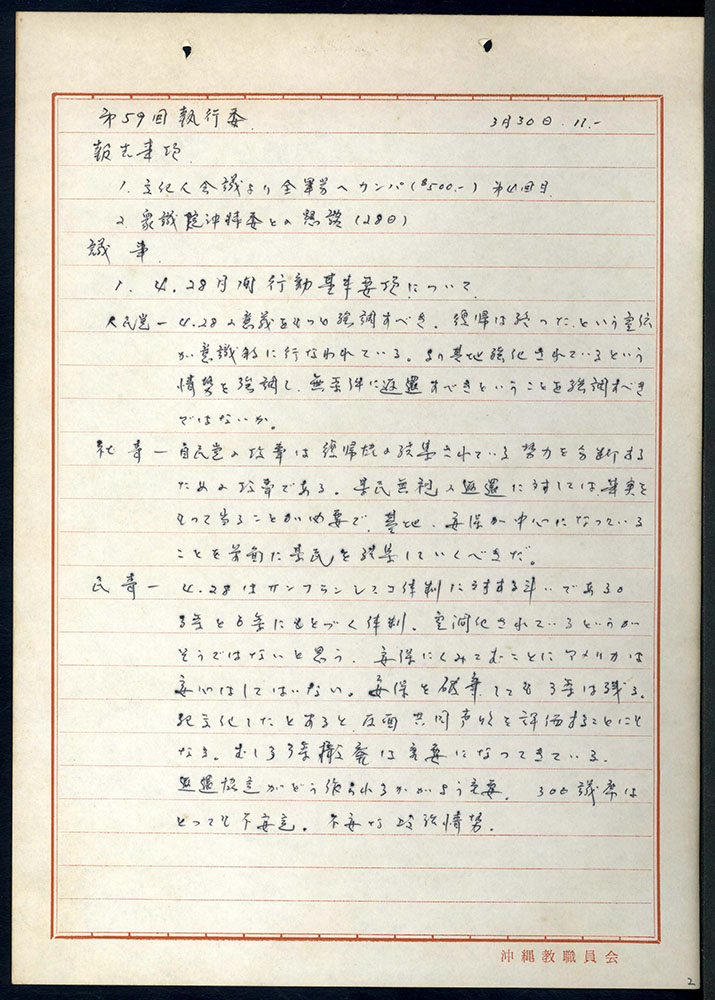 第59回執行委　3月30日.11.-
報告事項
1. 文化人会議より全軍労へカンパ($500.-) 第4回目
2. 衆議院沖特委との懇談(28日)
議事
1. 4.28月間行動基本要項について
人民党ー4.28の意義をもっと強調すべき。復帰は終った、という宣伝
が意識的に行なわれている。より基地強化されているという
情勢を強調し、無条件に返還すべきということを強調すべき
ではないか。
社青ー自民党の攻撃は復帰協に結集されている勢力を分断する
ための攻撃である。県民無視の返還に対しては、事実を
もって当ることが必要で、基地・安保が中心になっている
ことを前面に県民を結集していくべきだ。
民青ー4.28はサンフランシスコ体制に対する斗いである。
3条と6条にもとづく体制。空洞化されているというが
そうではないと思う。安保にくみこむことにアメリカは
安心はしてはいない。安保を破棄しても3条は残る。
死文化したとあると、反面共同声明を評価することにと
なる。むしろ3条撤廃は重要になってきている。
返還協定がどう作られるかがより重要。300議席は
とっても不安定。不安な政治情勢。
沖縄教職員会
2